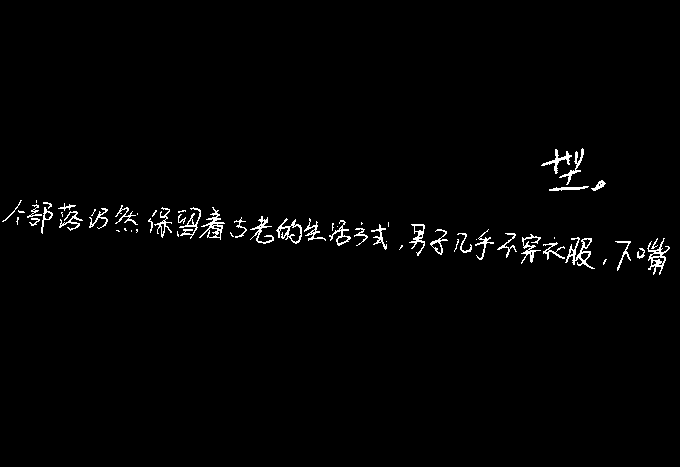 型。
个部落仍然保留着古老的生活方式,男子几乎不穿衣服,下嘴